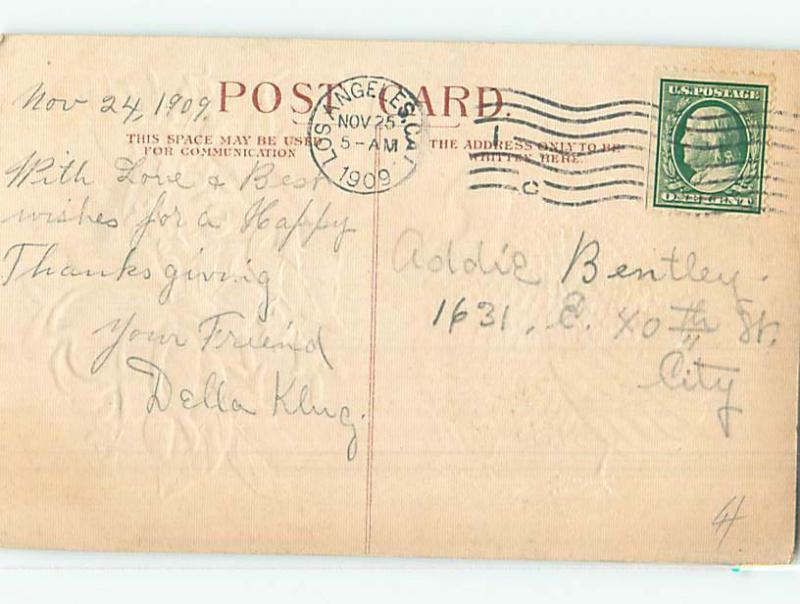 Nov 24, 1909.
POST CARD.
THIS SPACE MAY BE USED
FOR COMMUNICATION
THE ADDRESS ONLY TO BE
WRITTEN HERE.
LOS ANGELES, CAL.
NOV 25
5-AM
1909
U.S. POSTAGE
ONE CENT
With Love & Best
wishes for a Happy
Thanksgiving
Your Friend
Della Klug.
Addie Bentley.
1631, E. 40th St.
City
4